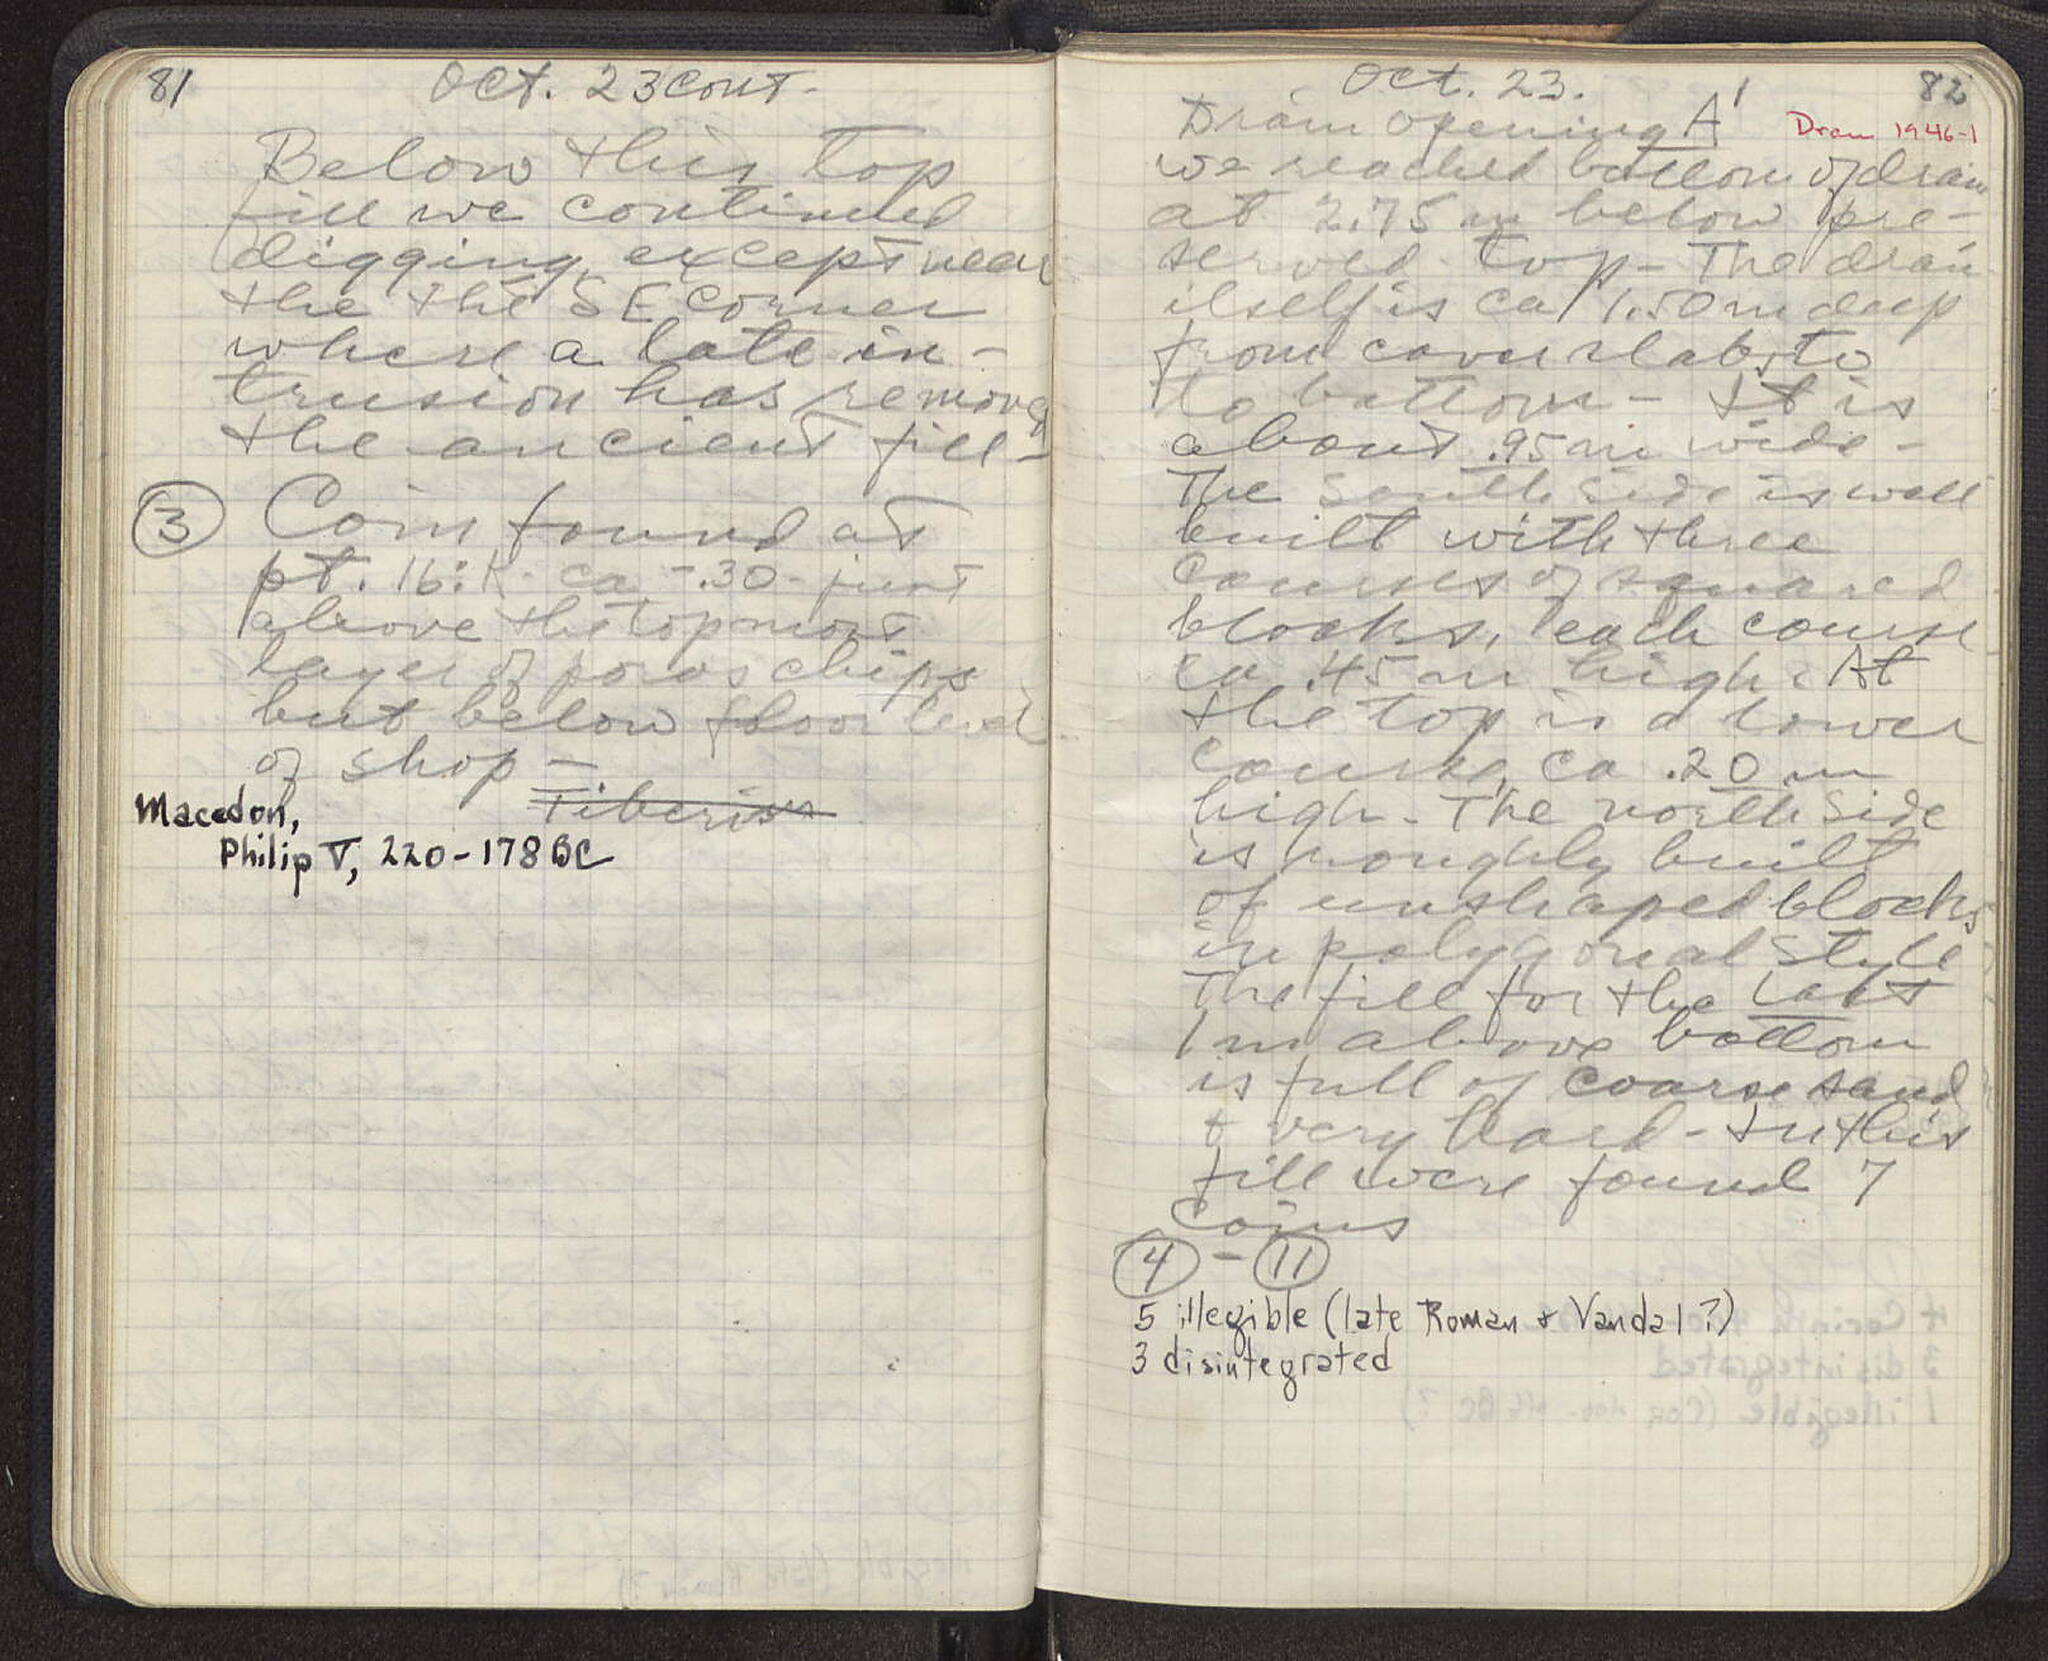 81
Oct. 23 cont.
Below this top
fill we continued
digging except near
the the SE corner
where a late in-
trusion has removed
the ancient fill -
3 Coin found at
pt. 16:K ca -.30 - just
above the topmost
layer of poros chips
but below floor level
of shop -
Tiberius
Macedon,
Philip V, 220-178 BC
82
Oct. 23.
Drain opening A'
Drain 1946-1
we reached bottom of drain
at 2.75 m below pre-
served top - The drain
itself is ca 1.50 m deep
from cover slabs to
to bottom - It is
about .95 m wide -
The South Side is well
built with three
courses of squared
blocks, each course
ca .45 m high. At
the top is a lower
course, ca .20 m
high - The north Side
is roughly built
of unshaped blocks
in polygonal Style
The fill for the last
1 m above bottom
is full of coarse sand
& very hard - In this
fill were found 7
coins
4 - 11
5 illegible (late Roman & Vandal?)
3 disintegrated